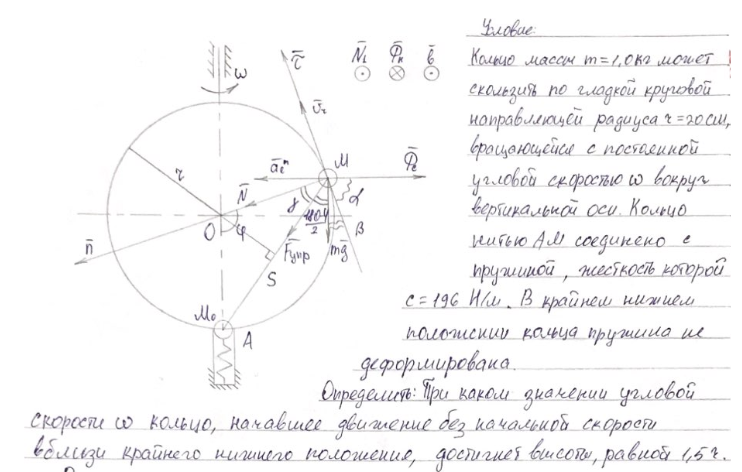 Условие:
Кольцо массы m=1,0кг может
скользить по гладкой круговой
направляющей радиуса r=20см,
вращающейся с постоянной
угловой скоростью ω вокруг
вертикальной оси. Кольцо
нитью AM соединено с
пружиной, жесткость которой
c=196 Н/м. В крайнем нижнем
положении кольца пружина не
деформирована.
Определить: При каком значении угловой
скорости ω кольцо, начавшее движение без начальной скорости
вблизи крайнего нижнего положения, достигнет высоты, равной 1,5r.
ω
τ̄
N̄₁ Φ̄ₙ b̄
v̄r
M
āeⁿ
Φ̄e
r
N̄
γ
α
β
O
φ
n̄
F̄упр
mḡ
S
M₀
A